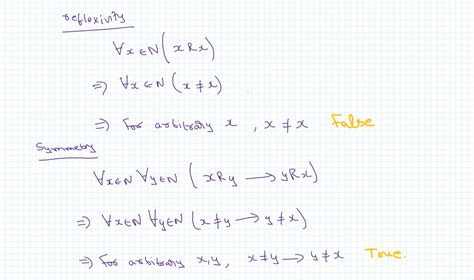 reflexivity
∀x∈N (xRx)
⇒ ∀x∈N (x≠x)
⇒ for arbitrary x, x≠x False
Symmetry
∀x∈N ∀y∈N (xRy ⟶ yRx)
⇒ ∀x∈N ∀y∈N (x≠y ⟶ y≠x)
⇒ for arbitrary x,y, x≠y ⟶ y≠x True.